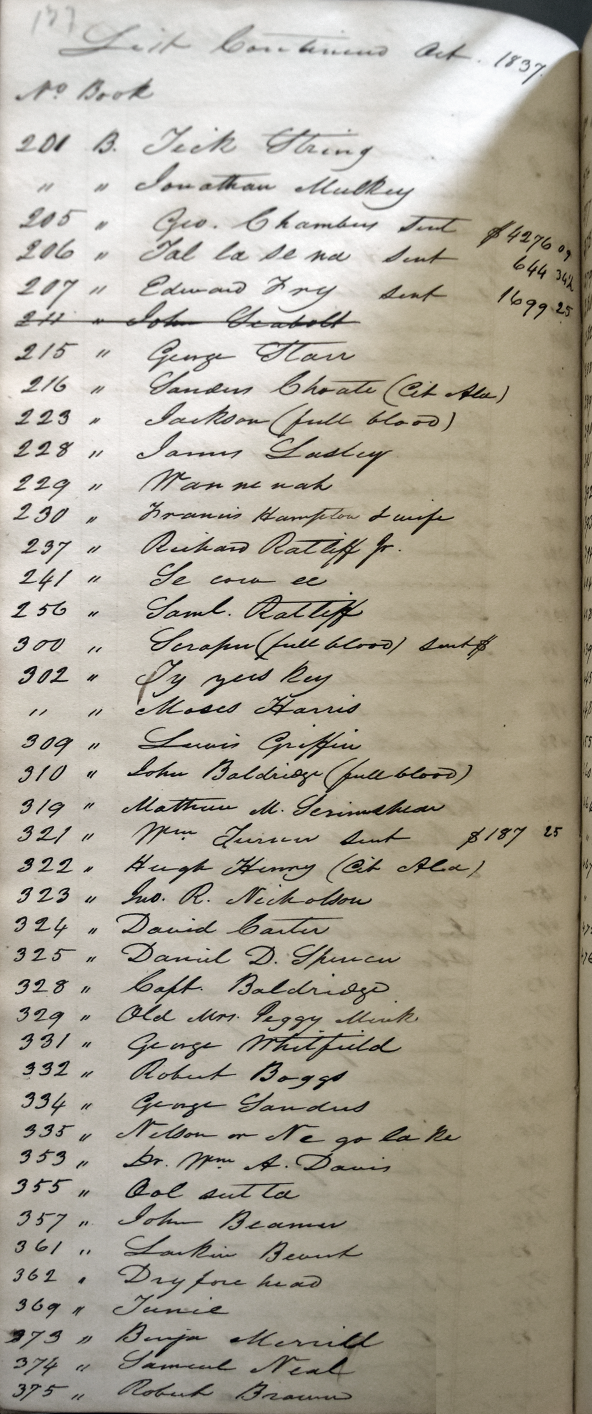 177
List Continued Oct. 1837.
No Book
201 B. Tick String
" " Jonathan Mulkey
205 " Geo. Chambers sent $4276 09
206 " Tal la se na sent 644 34½
207 " Edward Fry sent 1699 25
211 " John Seabolt
215 " George Starr
216 " Sanders Choate (Cit Ala)
223 " Jackson (full blood)
228 " James Lasley
229 " Wan ne nah
230 " Francis Hampton & wife
237 " Richard Ratliff Jr.
241 " Se cow ee
256 " Saml. Ratliff
300 " Scraper (full blood) sent $
302 " Ty yers key
" " Moses Harris
309 " Lewis Griffin
310 " John Baldridge (full blood)
319 " Mathew M. Scrimshear
321 " Wm Turner sent $187 25
322 " Hugh Henry (Cit Ala)
323 " Jno. R. Nicholson
324 " David Carter
325 " Daniel D. Spencer
328 " Capt. Baldridge
329 " Old Mrs. Peggy Mink
331 " George Whitfield
332 " Robert Boggs
334 " George Sanders
335 " Nelson or Ne go la ke
353 " Dr. Wm A. Davis
355 " Ool sut ta
357 " John Beamer
361 " Larkin Bevert
362 " Dry fore head
369 " Junie
373 " Benja Merrild
374 " Samuel Neal
375 " Robert Brown